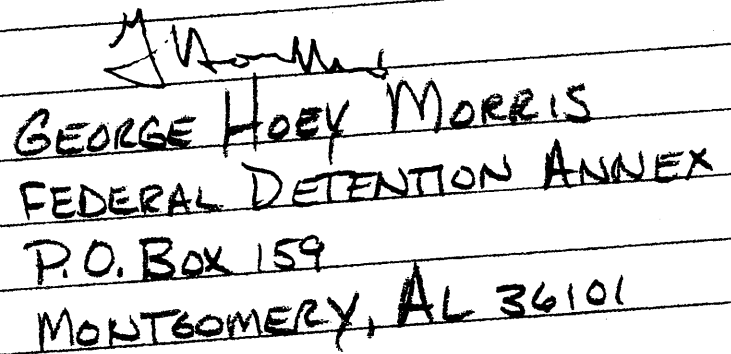 GEORGE HOEY MORRIS
FEDERAL DETENTION ANNEX
P.O. BOX 159
MONTGOMERY, AL 36101